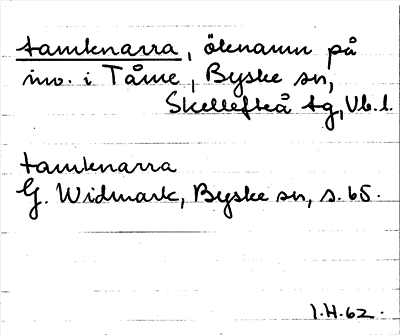 tamknarra, öknamn på
inv. i Tåme, Byske sn,
Skellefteå tg, Vb. l.
tamknarra
G. Widmark, Byske sn, s. 65.
I.H.62.